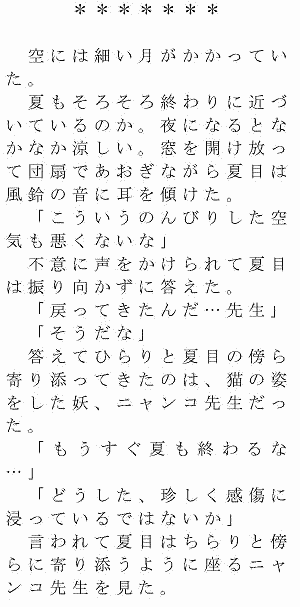 ＊＊＊＊＊＊＊
　空には細い月がかかってい
た。
　夏もそろそろ終わりに近づ
いているのか。夜になるとな
かなか涼しい。窓を開け放っ
て団扇であおぎながら夏目は
風鈴の音に耳を傾けた。
　「こういうのんびりした空
気も悪くないな」
　不意に声をかけられて夏目
は振り向かずに答えた。
　「戻ってきたんだ…先生」
　「そうだな」
　答えてひらりと夏目の傍ら
寄り添ってきたのは、猫の姿
をした妖、ニャンコ先生だっ
た。
　「もうすぐ夏も終わるな
…」
　「どうした、珍しく感傷に
浸っているではないか」
　言われて夏目はちらりと傍
らに寄り添うように座るニャ
ンコ先生を見た。